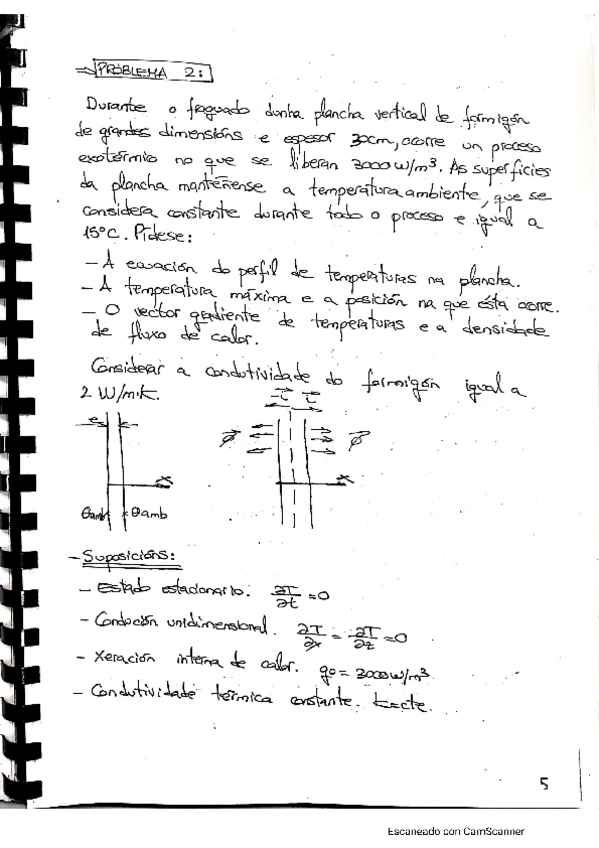 ⇒ PROBLEMA 2:
Durante o fraguado dunha plancha vertical de formigón
de grandes dimensións e espesor 30cm, ocorre un proceso
exotérmio no que se liberan 3000 W/m³. As superficies
da plancha manteñense a temperatura ambiente, que se
considera constante durante todo o proceso e igual a
15ºC. Pídese:
- A ecuación do perfil de temperaturas na plancha.
- A temperatura máxima e a posición na que ésta ocorre.
- O vector gradiente de temperaturas e a densidade
de fluxo de calor.
Considerar a condutividade do formigón igual a
2 W/m·K.
e
x
θamb θamb
x
- Suposicións:
- Estado estacionario: ∂T/∂t = 0
- Condución unidimensional. ∂T/∂x = ∂T/∂z = 0
- Xeración interna de calor. g₀ = 3000 W/m³
- Condutividade térmica constante. k=cte.
5
Escaneado con CamScanner